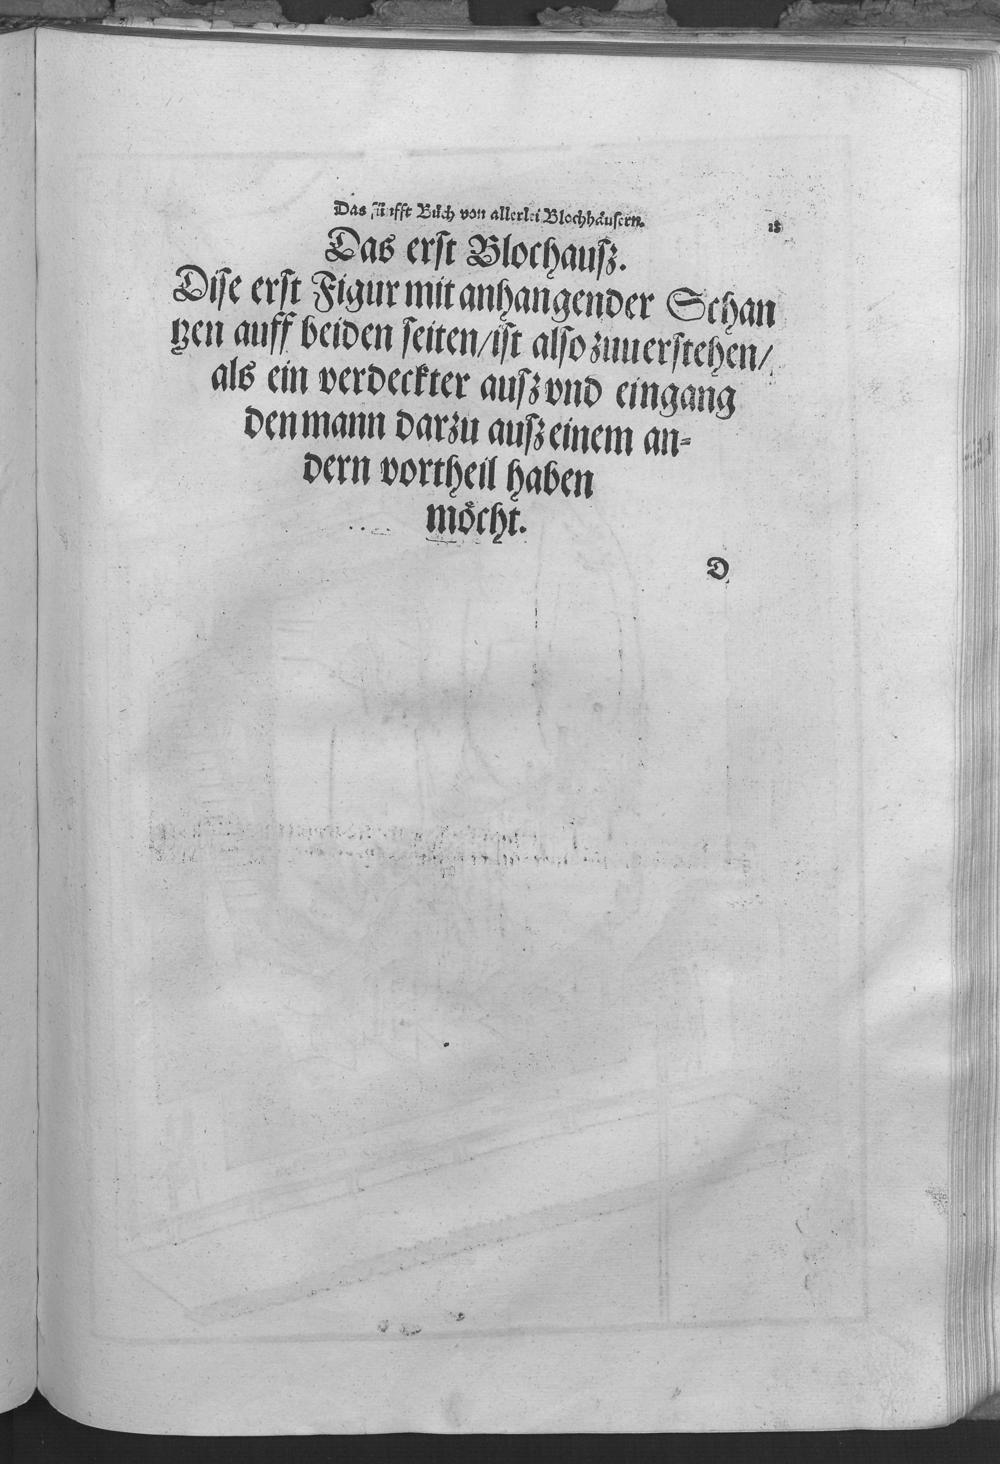 Das fünfft Bůch von allerlei Blochheusern.
Das erst Blochausz.
Dise erst Figur mit anhangender Schan
tzen auff beiden seiten/ist also zuuerstehen/
als ein verdeckter ausz vnd eingang
den mann darzu ausz einem an⸗
dern vortheil haben
möcht.
D